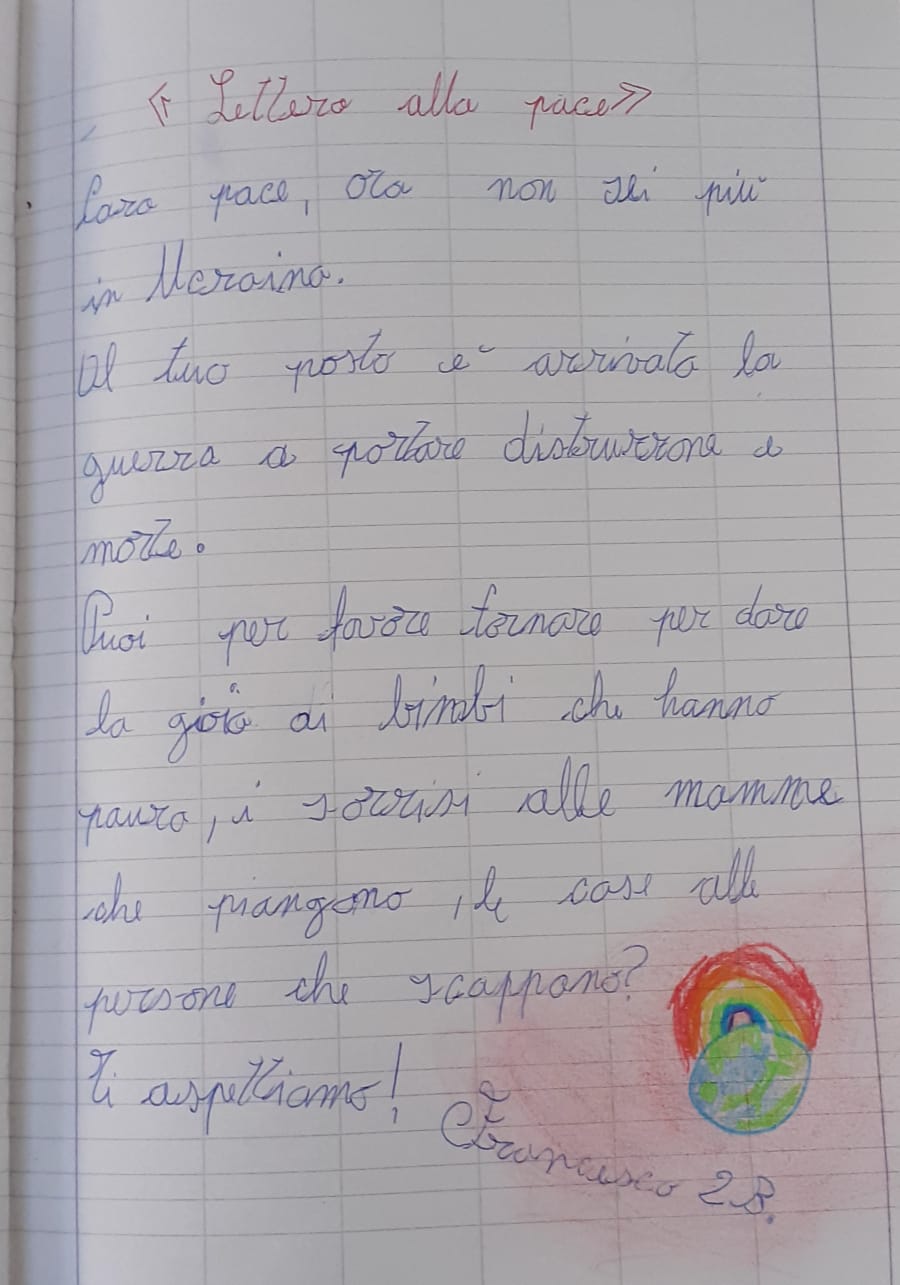 « Lettera alla pace»
Cara pace, ora non sei più
in Ucraina.
Al tuo posto e' arrivata la
guerra a portare distruzione e
morte.
Puoi per favore tornare per dare
la gioia ai bimbi che hanno
paura, i sorrisi alle mamme
che piangono, le case alle
persone che scappano?
Ti aspettiamo!
Francesco 2B.